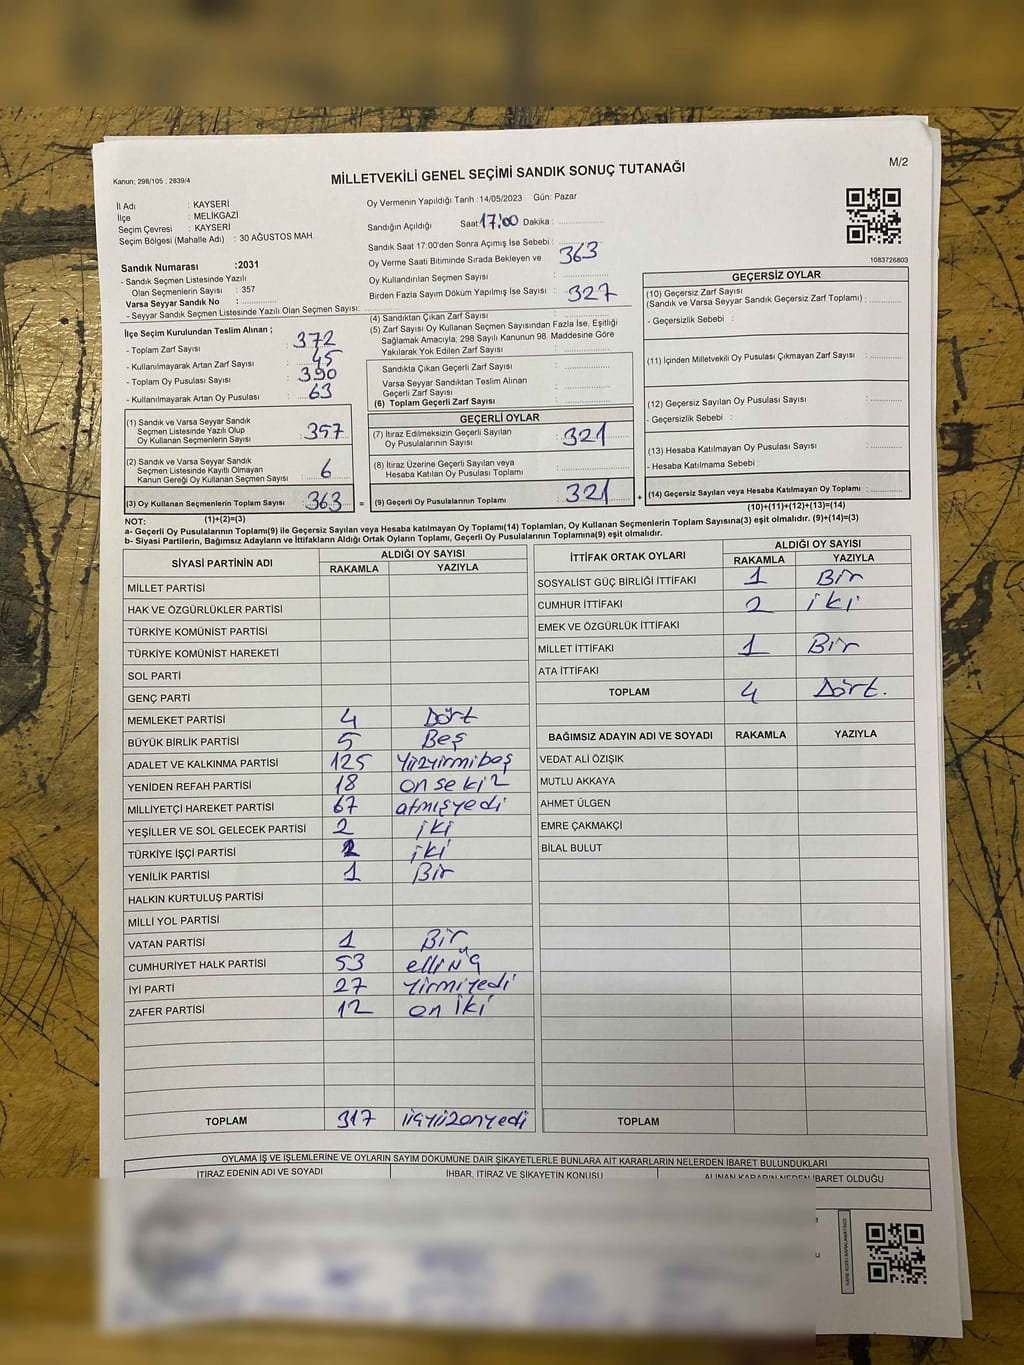 Kanun; 298/105 , 2839/4
MİLLETVEKİLİ GENEL SEÇİMİ SANDIK SONUÇ TUTANAĞI
M/2
İl Adı : KAYSERİ
İlçe : MELİKGAZİ
Seçim Çevresi : KAYSERİ
Seçim Bölgesi (Mahalle Adı) : 30 AĞUSTOS MAH.
Oy Vermenin Yapıldığı Tarih :14/05/2023 Gün: Pazar
Sandığın Açıldığı Saat 17:00 Dakika :
Sandık Saat 17:00'den Sonra Açımış İse Sebebi :
Oy Verme Saati Bitiminde Sırada Bekleyen ve 363
Oy Kullandırılan Seçmen Sayısı
Birden Fazla Sayım Döküm Yapılmış İse Sayısı 327
1083726803
Sandık Numarası :2031
- Sandık Seçmen Listesinde Yazılı
Olan Seçmenlerin Sayısı : 357
Varsa Seyyar Sandık No :
- Seyyar Sandık Seçmen Listesinde Yazılı Olan Seçmen Sayısı:
İlçe Seçim Kurulundan Teslim Alınan ;
- Toplam Zarf Sayısı : 372
- Kullanılmayarak Artan Zarf Sayısı : 45
- Toplam Oy Pusulası Sayısı : 390
- Kullanılmayarak Artan Oy Pusulası : 63
(1) Sandık ve Varsa Seyyar Sandık
Seçmen Listesinde Yazılı Olup
Oy Kullanan Seçmenlerin Sayısı : 357
(2) Sandık ve Varsa Seyyar Sandık
Seçmen Listesinde Kayıtlı Olmayan
Kanun Gereği Oy Kullanan Seçmen Sayısı : 6
(3) Oy Kullanan Seçmenlerin Toplam Sayısı : 363
(1)+(2)=(3)
(4) Sandıktan Çıkan Zarf Sayısı
(5) Zarf Sayısı Oy Kullanan Seçmen Sayısından Fazla İse, Eşitliği
Sağlamak Amacıyla, 298 Sayılı Kanunun 98. Maddesine Göre
Yakılarak Yok Edilen Zarf Sayısı :
Sandıkta Çıkan Geçerli Zarf Sayısı :
Varsa Seyyar Sandıktan Teslim Alınan
Geçerli Zarf Sayısı :
(6) Toplam Geçerli Zarf Sayısı :
GEÇERLİ OYLAR
(7) İtiraz Edilmeksizin Geçerli Sayılan
Oy Pusulalarının Sayısı : 321
(8) İtiraz Üzerine Geçerli Sayılan veya
Hesaba Katılan Oy Pusulası Toplamı :
= (9) Geçerli Oy Pusulalarının Toplamı : 321
GEÇERSİZ OYLAR
(10) Geçersiz Zarf Sayısı
(Sandık ve Varsa Seyyar Sandık Geçersiz Zarf Toplamı) :
- Geçersizlik Sebebi :
(11) İçinden Milletvekili Oy Pusulası Çıkmayan Zarf Sayısı :
(12) Geçersiz Sayılan Oy Pusulası Sayısı :
- Geçersizlik Sebebi :
(13) Hesaba Katılmayan Oy Pusulası Sayısı :
- Hesaba Katılmama Sebebi :
+ (14) Geçersiz Sayılan veya Hesaba Katılmayan Oy Toplamı :
(10)+(11)+(12)+(13)=(14)
NOT:
a- Geçerli Oy Pusulalarının Toplamı(9) ile Geçersiz Sayılan veya Hesaba katılmayan Oy Toplamı(14) Toplamları, Oy Kullanan Seçmenlerin Toplam Sayısına(3) eşit olmalıdır. (9)+(14)=(3)
b- Siyasi Partilerin, Bağımsız Adayların ve İttifakların Aldığı Ortak Oyların Toplamı, Geçerli Oy Pusulalarının Toplamına(9) eşit olmalıdır.
SİYASİ PARTİNİN ADI
ALDIĞI OY SAYISI
RAKAMLA YAZIYLA
MİLLET PARTİSİ
HAK VE ÖZGÜRLÜKLER PARTİSİ
TÜRKİYE KOMÜNİST PARTİSİ
TÜRKİYE KOMÜNİST HAREKETİ
SOL PARTİ
GENÇ PARTİ
MEMLEKET PARTİSİ 4 Dört
BÜYÜK BİRLİK PARTİSİ 5 Beş
ADALET VE KALKINMA PARTİSİ 125 Yüzyirmibeş
YENİDEN REFAH PARTİSİ 18 on sekiz
MİLLİYETÇİ HAREKET PARTİSİ 67 atmışyedi
YEŞİLLER VE SOL GELECEK PARTİSİ 2 iki
TÜRKİYE İŞÇİ PARTİSİ 2 iki
YENİLİK PARTİSİ 1 Bir
HALKIN KURTULUŞ PARTİSİ
MİLLİ YOL PARTİSİ
VATAN PARTİSİ 1 Bir
CUMHURİYET HALK PARTİSİ 53 elliüç
İYİ PARTİ 27 Yirmiyedi
ZAFER PARTİSİ 12 on iki
TOPLAM 317 üçyüzonyedi
İTTİFAK ORTAK OYLARI
ALDIĞI OY SAYISI
RAKAMLA YAZIYLA
SOSYALİST GÜÇ BİRLİĞİ İTTİFAKI 1 Bir
CUMHUR İTTİFAKI 2 iki
EMEK VE ÖZGÜRLÜK İTTİFAKI
MİLLET İTTİFAKI 1 Bir
ATA İTTİFAKI
TOPLAM 4 Dört.
BAĞIMSIZ ADAYIN ADI VE SOYADI RAKAMLA YAZIYLA
VEDAT ALİ ÖZIŞIK
MUTLU AKKAYA
AHMET ÜLGEN
EMRE ÇAKMAKÇİ
BİLAL BULUT
TOPLAM
OYLAMA İŞ VE İŞLEMLERİNE VE OYLARIN SAYIM DÖKÜMÜNE DAİR ŞİKAYETLERLE BUNLARA AİT KARARLARIN NELERDEN İBARET BULUNDUKLARI
İTİRAZ EDENİN ADI VE SOYADI İHBAR, İTİRAZ VE ŞİKAYETİN KONUSU ALINAN KARARIN NEDEN İBARET OLDUĞU